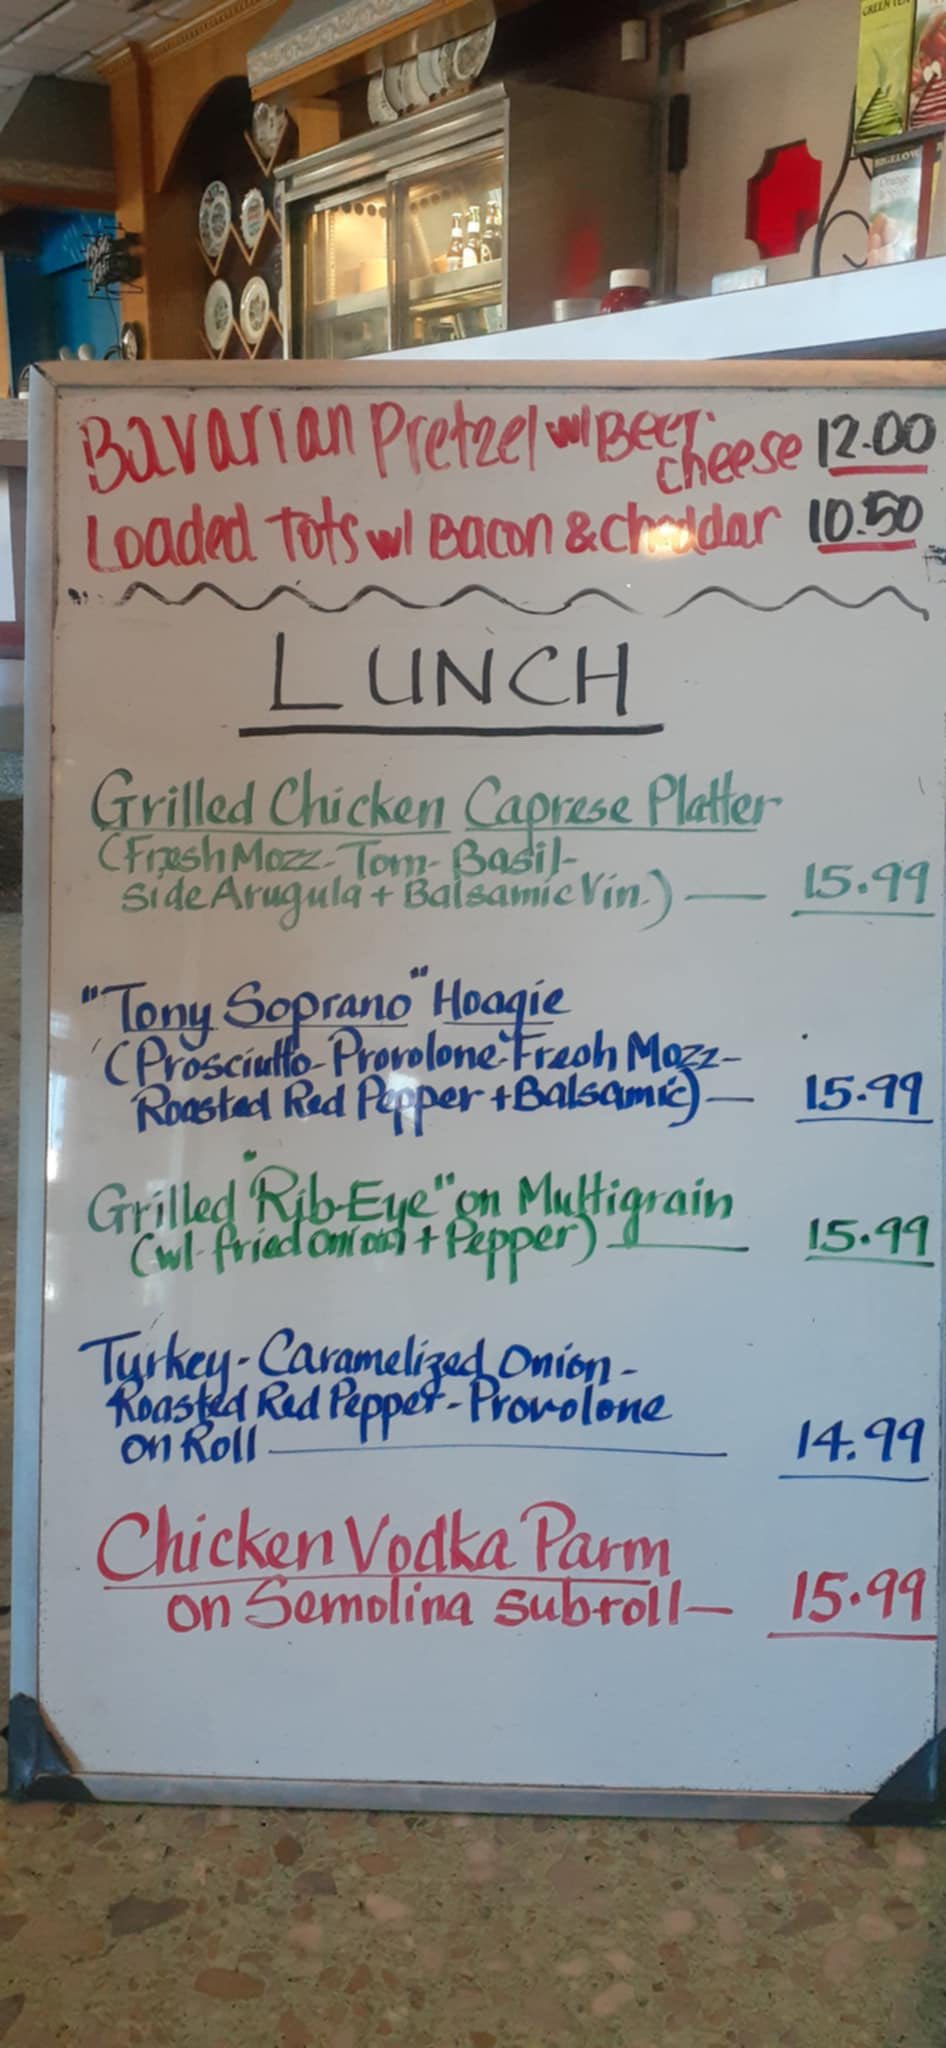 GREEN TEA
BIGELOW
Bavarian Pretzel w/ Beer
cheese 12.00
Loaded Tots w/ Bacon & cheddar 10.50
LUNCH
Grilled Chicken Caprese Platter
(Fresh Mozz - Tom - Basil -
side Arugula + Balsamic Vin.) — 15.99
"Tony Soprano" Hoagie
(Prosciutto - Provolone - Fresh Mozz -
Roasted Red Pepper + Balsamic) — 15.99
Grilled "Rib-Eye" on Multigrain
(w/ fried onion + Pepper) — 15.99
Turkey - Caramelized Onion -
Roasted Red Pepper - Provolone
on Roll — 14.99
Chicken Vodka Parm
on Semolina subroll — 15.99